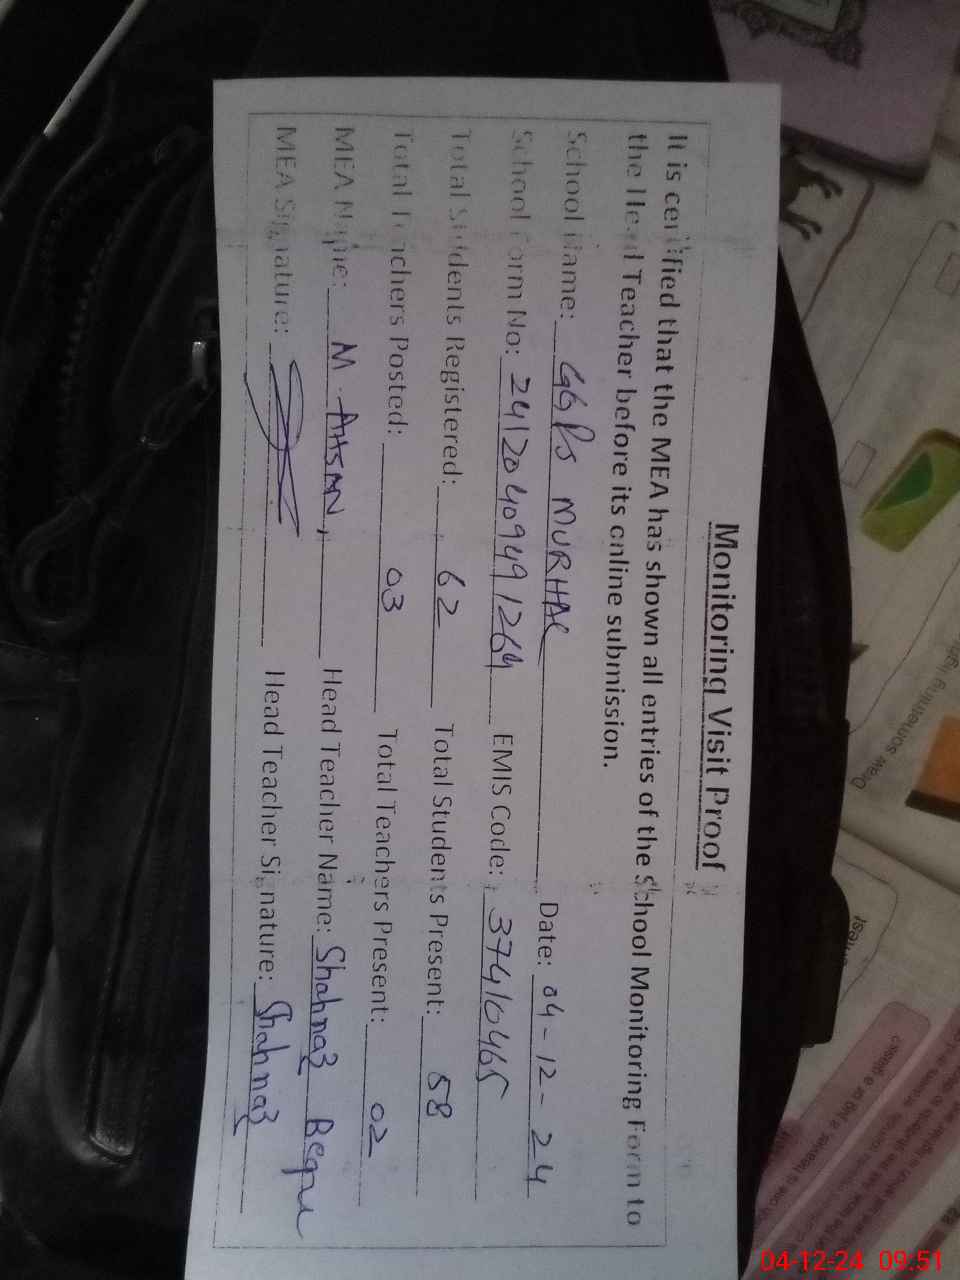 Monitoring Visit Proof
It is certified that the MEA has shown all entries of the School Monitoring Form to
the Head Teacher before its online submission.
School Name: GGPS MURHAL Date: 04-12-24
School Form No: 24120409491264 EMIS Code: 37410465
Total Students Registered: 62 Total Students Present: 58
Total Teachers Posted: 03 Total Teachers Present: 02
MEA Name: M. AHSAN, Head Teacher Name: Shahnaz Begum
MEA Signature: Head Teacher Signature: Shahnaz
Draw something light
04-12-24 09:51